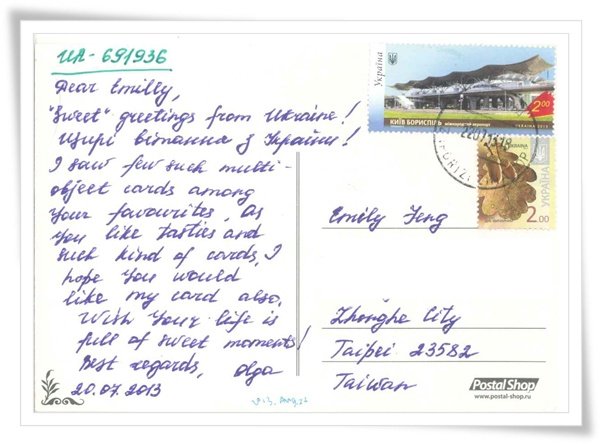 UA-691936
Dear Emilly,
"Sweet" greetings from Ukraine!
Щирі вітання з України!
I saw few such multi-
object cards among
your favourites. As
you like tasties and
such kind of cards, I
hope you would
like my card also.
Wish your life is
full of sweet moments!
Best regards, Olga
20.07.2013
Україна
2.00
КИЇВ БОРИСПІЛЬ
УКРАЇНА 2013
УКРАЇНА
2.00
Emily Jeng
Zhonghe City
Taipei 23582
Taiwan
Postal Shop
www.postal-shop.ru